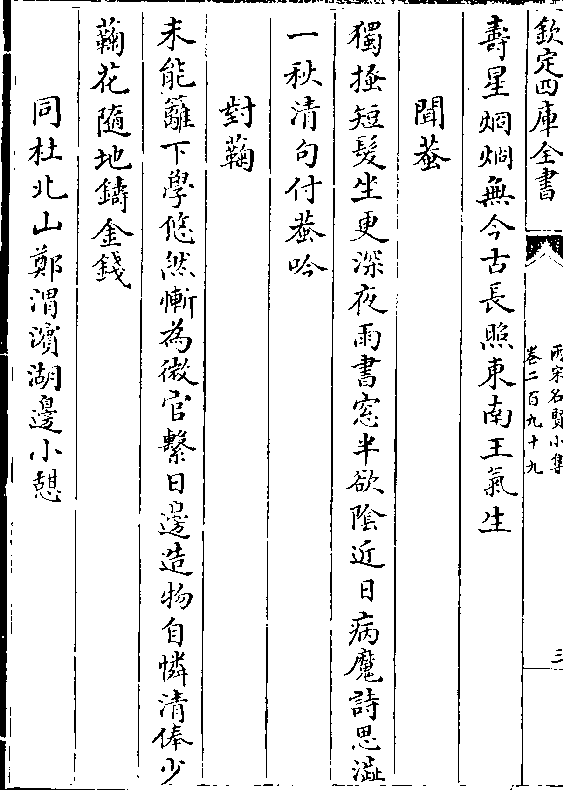 欽定四庫全書
兩宋名賢小集
卷二百九十九
三
壽星烱烱無今古長照東南王氣生
聞蛩
獨搔短髮坐更深夜雨書窓半欲陰近日病魔詩思澁
一秋清句付蛩吟
對蘜
未能籬下學悠然慚為微官繫日邊造物自憐清俸少
蘜花隨地鑄金錢
同杜北山鄭渭濵湖邊小憩